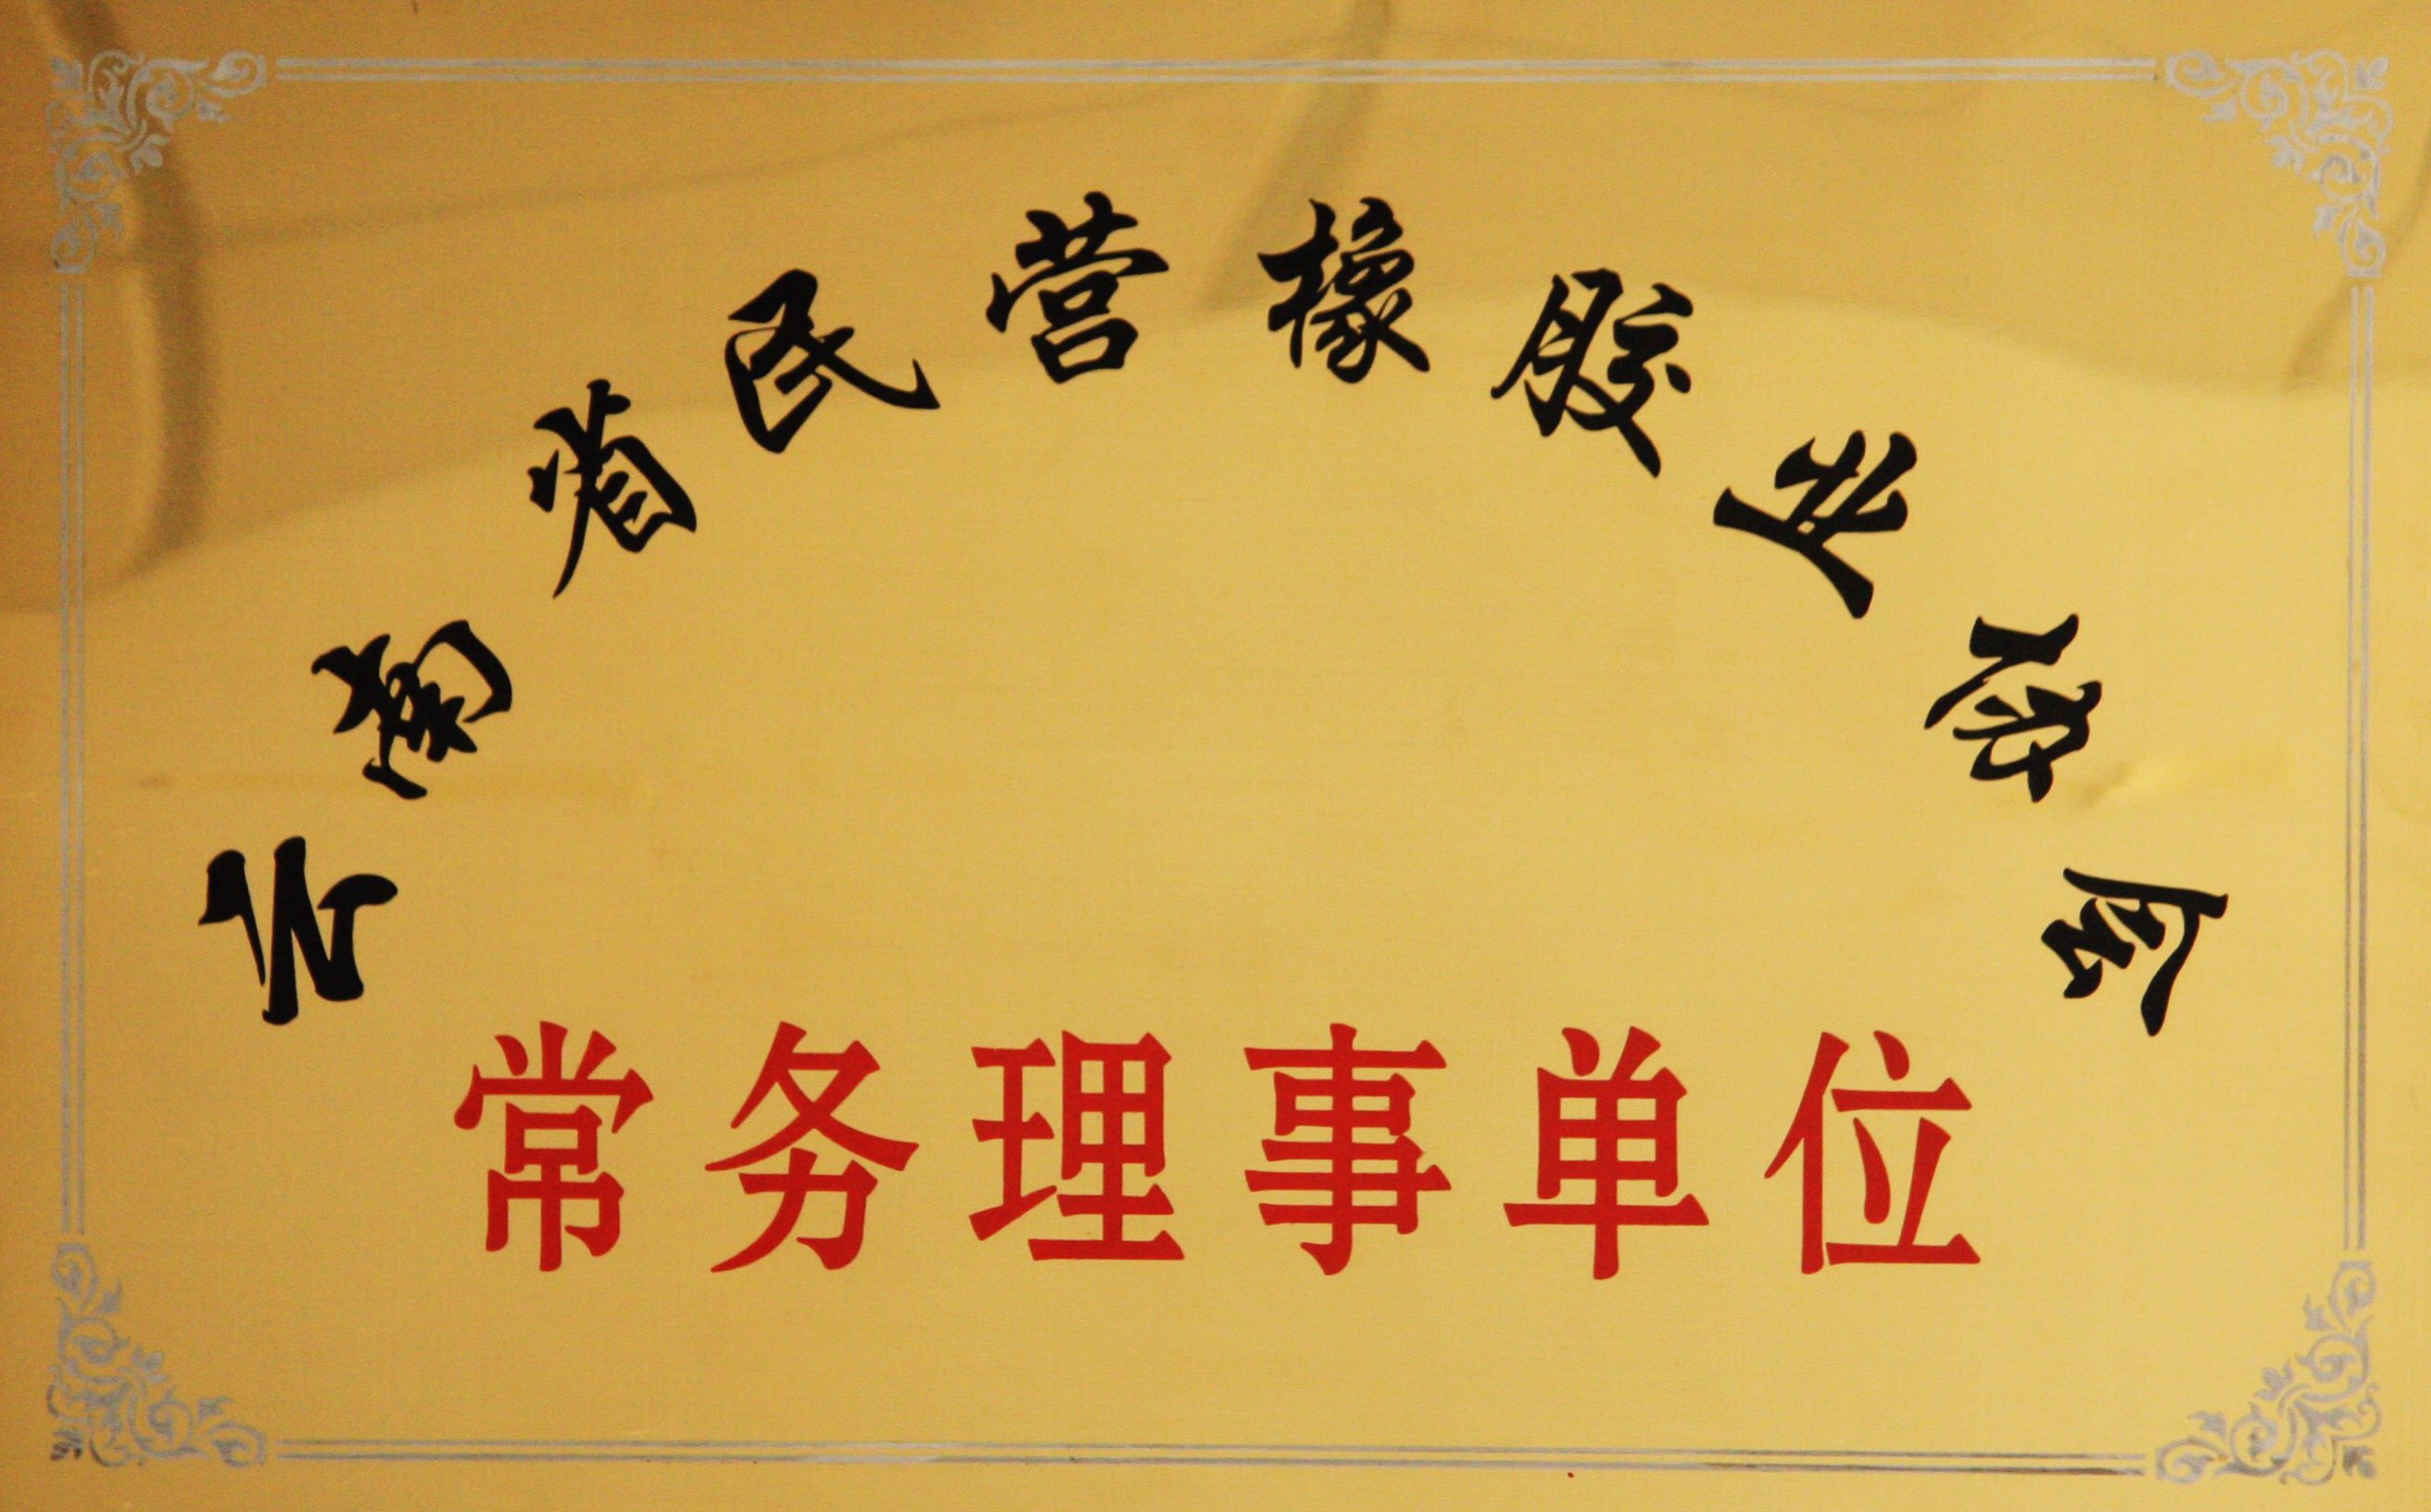 云南省民营橡胶业协会
常务理事单位